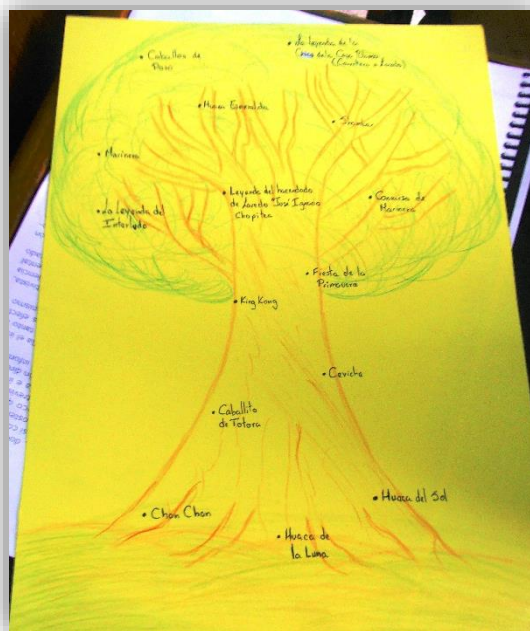 • Caballos de
Paso
• La leyenda de la
de la Casa Blanca
(Carretera a Laredo)
• Huaca Esmeralda
• Marinera
• Leyenda del hacendado
de Laredo "José Ignacio
Chopitea
• Concurso de
Marinera
• La Leyenda del
Interlude
• Fiesta de la
Primavera
• King Kong
• Ceviche
• Caballito
de Totora
• Huaca del Sol
• Chan Chan
• Huaca de
la Luna